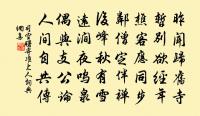 昨聞歸舊寺
暫別欲經年
樵客應同步
鄰僧定伴禪
後峰秋有雪
遠澗夜鳴泉
偶與支公論
人間自共傳
司空曙寄准上人詞典
網